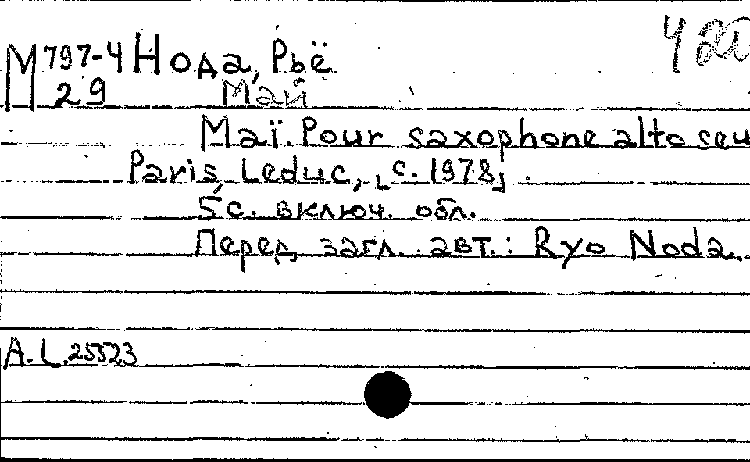 М797-4 Нода, Рьё
29 Май
Maï. Pour saxophone alto seu
Paris, Leduc, [c. 1978].
5 с. включ. обл.
Перед загл. авт.: Ryo Noda.
A. L. 25523